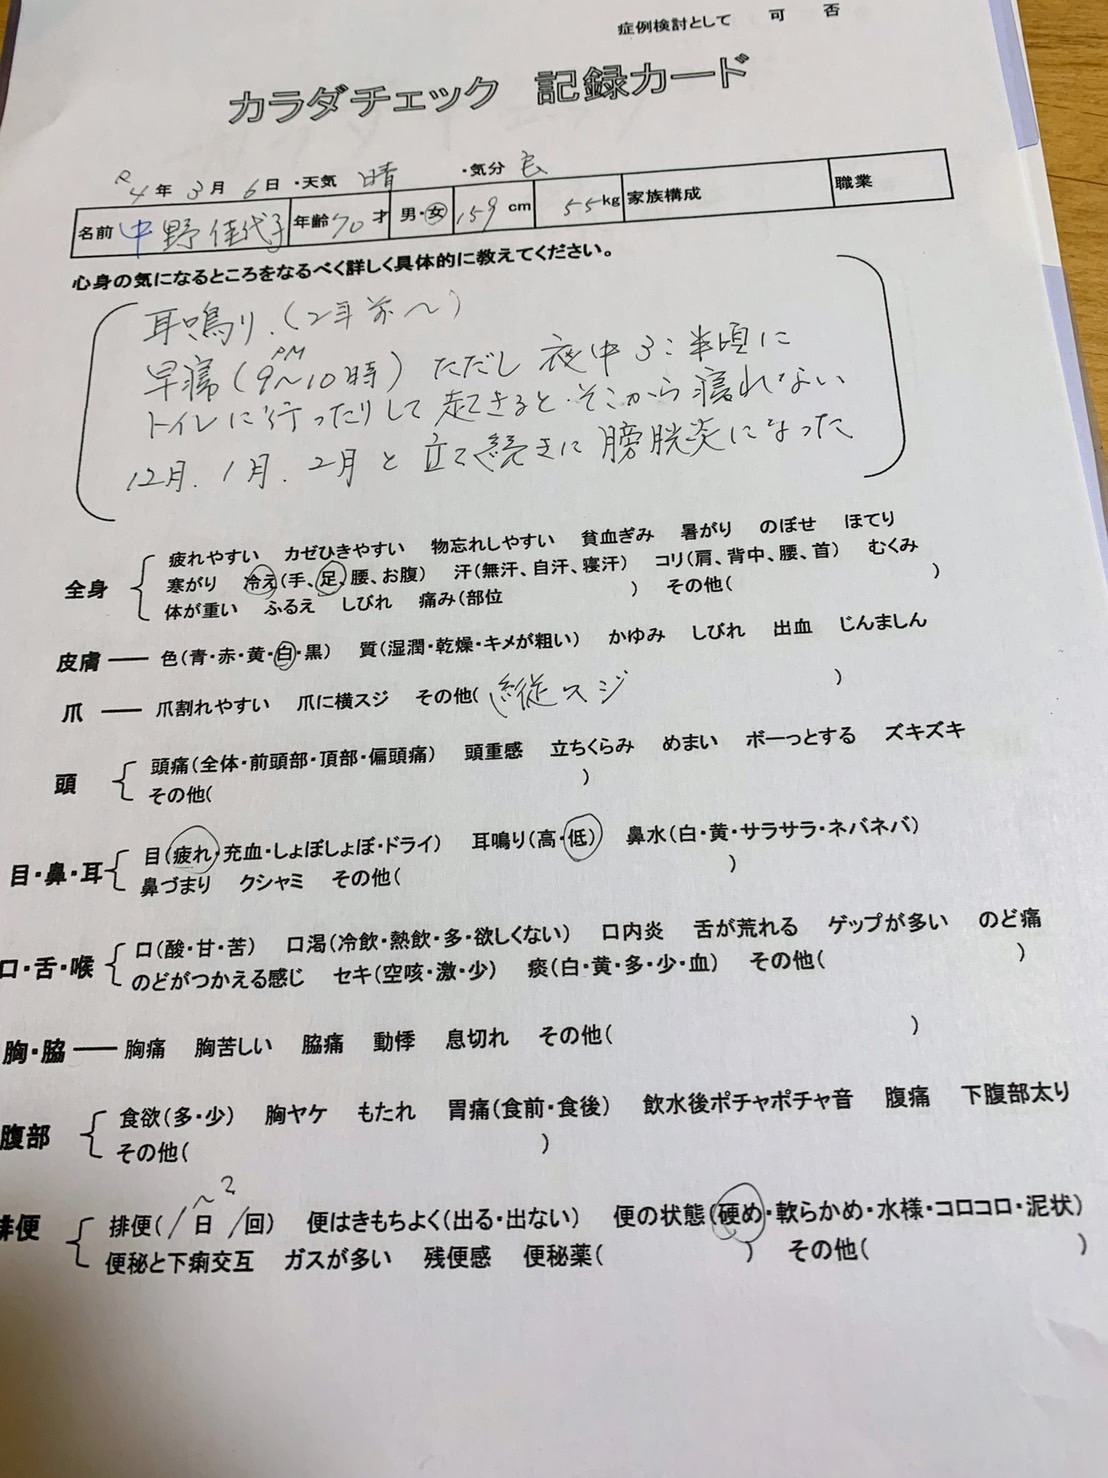 症例検討として 可 否
カラダチェック 記録カード
R4年3月6日・天気 晴 ・気分 良
名前 中野佳代子 年齢70才 男・女 159cm 55kg 家族構成 職業
心身の気になるところをなるべく詳しく具体的に教えてください。
耳鳴り.(2年前〜)
PM
早寝(9〜10時) ただし 夜中3:半頃に
トイレに行ったりして起きると・そこから寝れない
12月.1月.2月と立て続きに膀胱炎になった
疲れやすい カゼひきやすい 物忘れしやすい 貧血ぎみ 暑がり のぼせ ほてり
全身 寒がり 冷え(手、足、腰、お腹) 汗(無汗、自汗、寝汗) コリ(肩、背中、腰、首) むくみ
体が重い ふるえ しびれ 痛み(部位 ) その他( )
皮膚 ― 色(青・赤・黄・白・黒) 質(湿潤・乾燥・キメが粗い) かゆみ しびれ 出血 じんましん
爪 ― 爪割れやすい 爪に横スジ その他(縦スジ )
頭 頭痛(全体・前頭部・頂部・偏頭痛) 頭重感 立ちくらみ めまい ボーっとする ズキズキ
その他( )
目・鼻・耳 目(疲れ・充血・しょぼしょぼ・ドライ) 耳鳴り(高・低) 鼻水(白・黄・サラサラ・ネバネバ)
鼻づまり クシャミ その他( )
口・舌・喉 口(酸・甘・苦) 口渇(冷飲・熱飲・多・欲しくない) 口内炎 舌が荒れる ゲップが多い のど痛
のどがつかえる感じ セキ(空咳・激・少) 痰(白・黄・多・少・血) その他( )
胸・脇 ― 胸痛 胸苦しい 脇痛 動悸 息切れ その他( )
腹部 食欲(多・少) 胸ヤケ もたれ 胃痛(食前・食後) 飲水後ポチャポチャ音 腹痛 下腹部太り
その他( )
〜2
排便 排便(/日 /回) 便はきもちよく(出る・出ない) 便の状態(硬め・軟らかめ・水様・コロコロ・泥状)
便秘と下痢交互 ガスが多い 残便感 便秘薬( ) その他( )